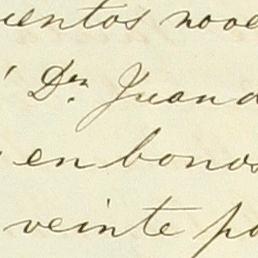 ientos nove
Dn. Juan d
en bonos
veinte po